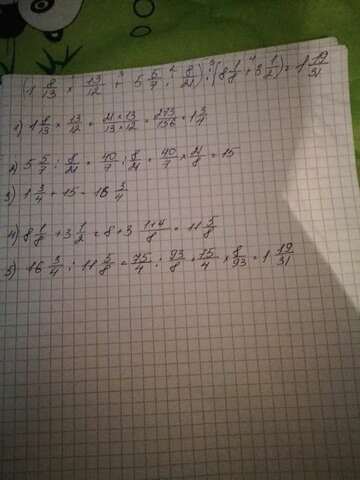 (1 8/13 × 13/12 + 5 5/7 : 8/21) : (8 1/8 + 3 1/2) = 1 19/31
1) 1 8/13 × 13/12 = 21 × 13/13 × 12 = 273/156 = 1 3/4
2) 5 5/7 : 8/21 = 40/7 : 8/21 = 40/7 × 21/8 = 15
3) 1 3/4 + 15 = 16 3/4
4) 8 1/8 + 3 1/2 = 8 + 3 1+4/8 = 11 5/8
5) 16 3/4 : 11 5/8 = 75/4 : 93/8 = 75/4 × 8/93 = 1 19/31